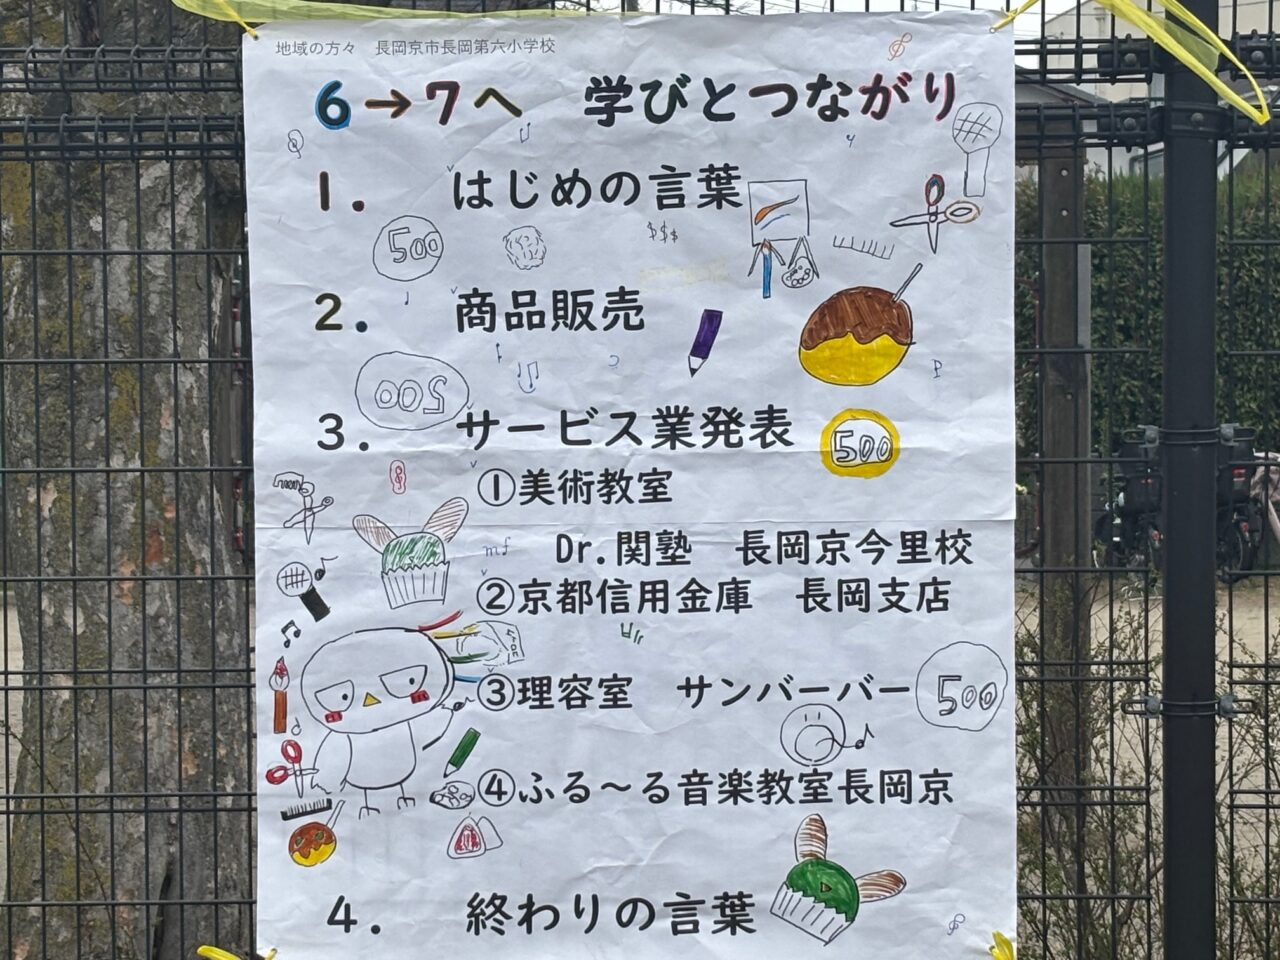 地域の方々　長岡京市長岡第六小学校
6→7へ　学びとつながり
1.　はじめの言葉
500
$$$
2.　商品販売
500
3.　サービス業発表
500
①美術教室
Dr.関塾　長岡京今里校
mf
②京都信用金庫　長岡支店
③理容室　サンバーバー
500
④ふる～る音楽教室長岡京
4.　終わりの言葉